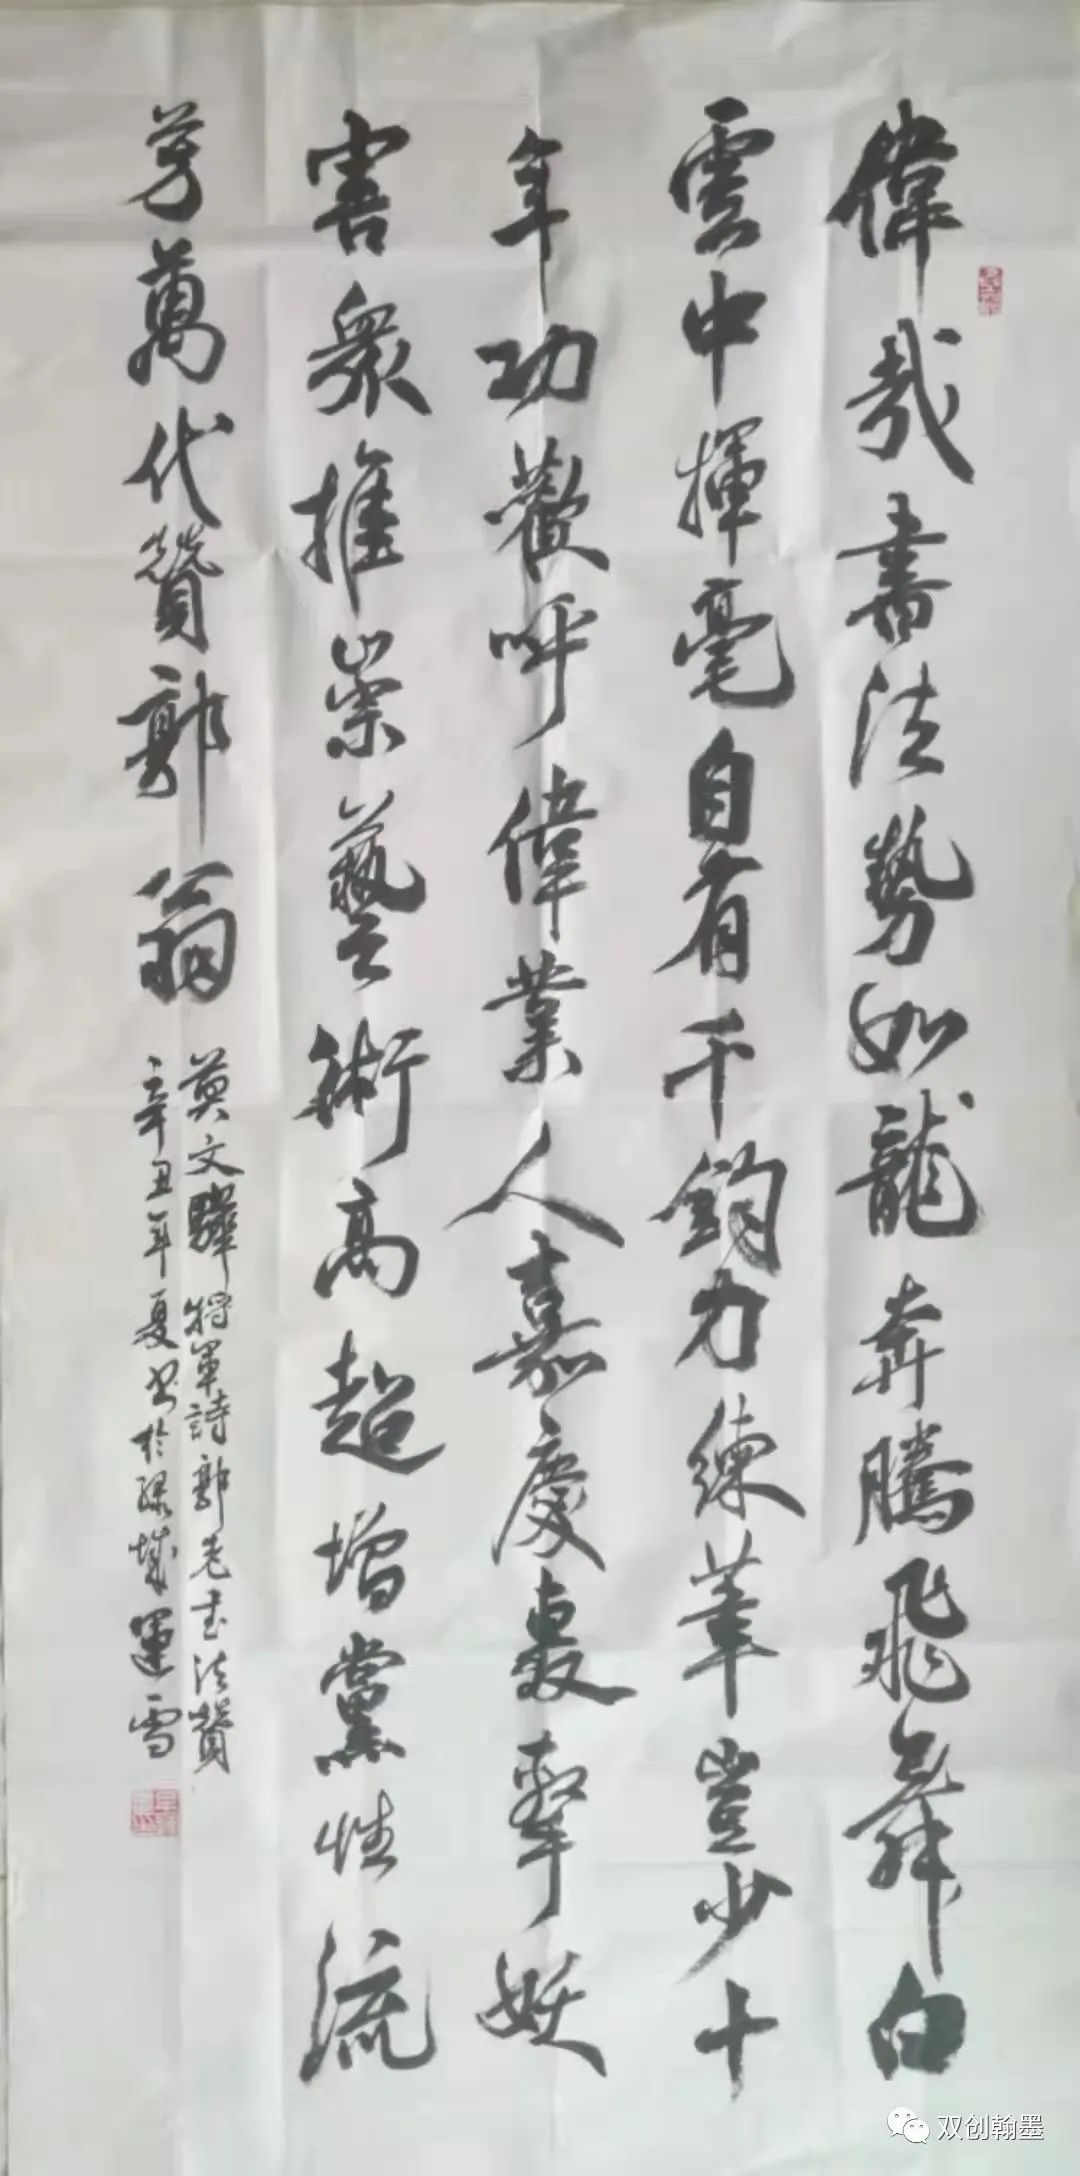 偉哉書法勢如龍奔騰飛舞白
雲中揮毫自有千鈞力練筆豈少十
年功歡呼偉業人嘉慶轰擊妖
害衆推崇藝術高超增黨性流
芳萬代贊郭翁
莫文驊將軍詩郭老书法贊
辛丑年夏书於綠城運雪
双创翰墨